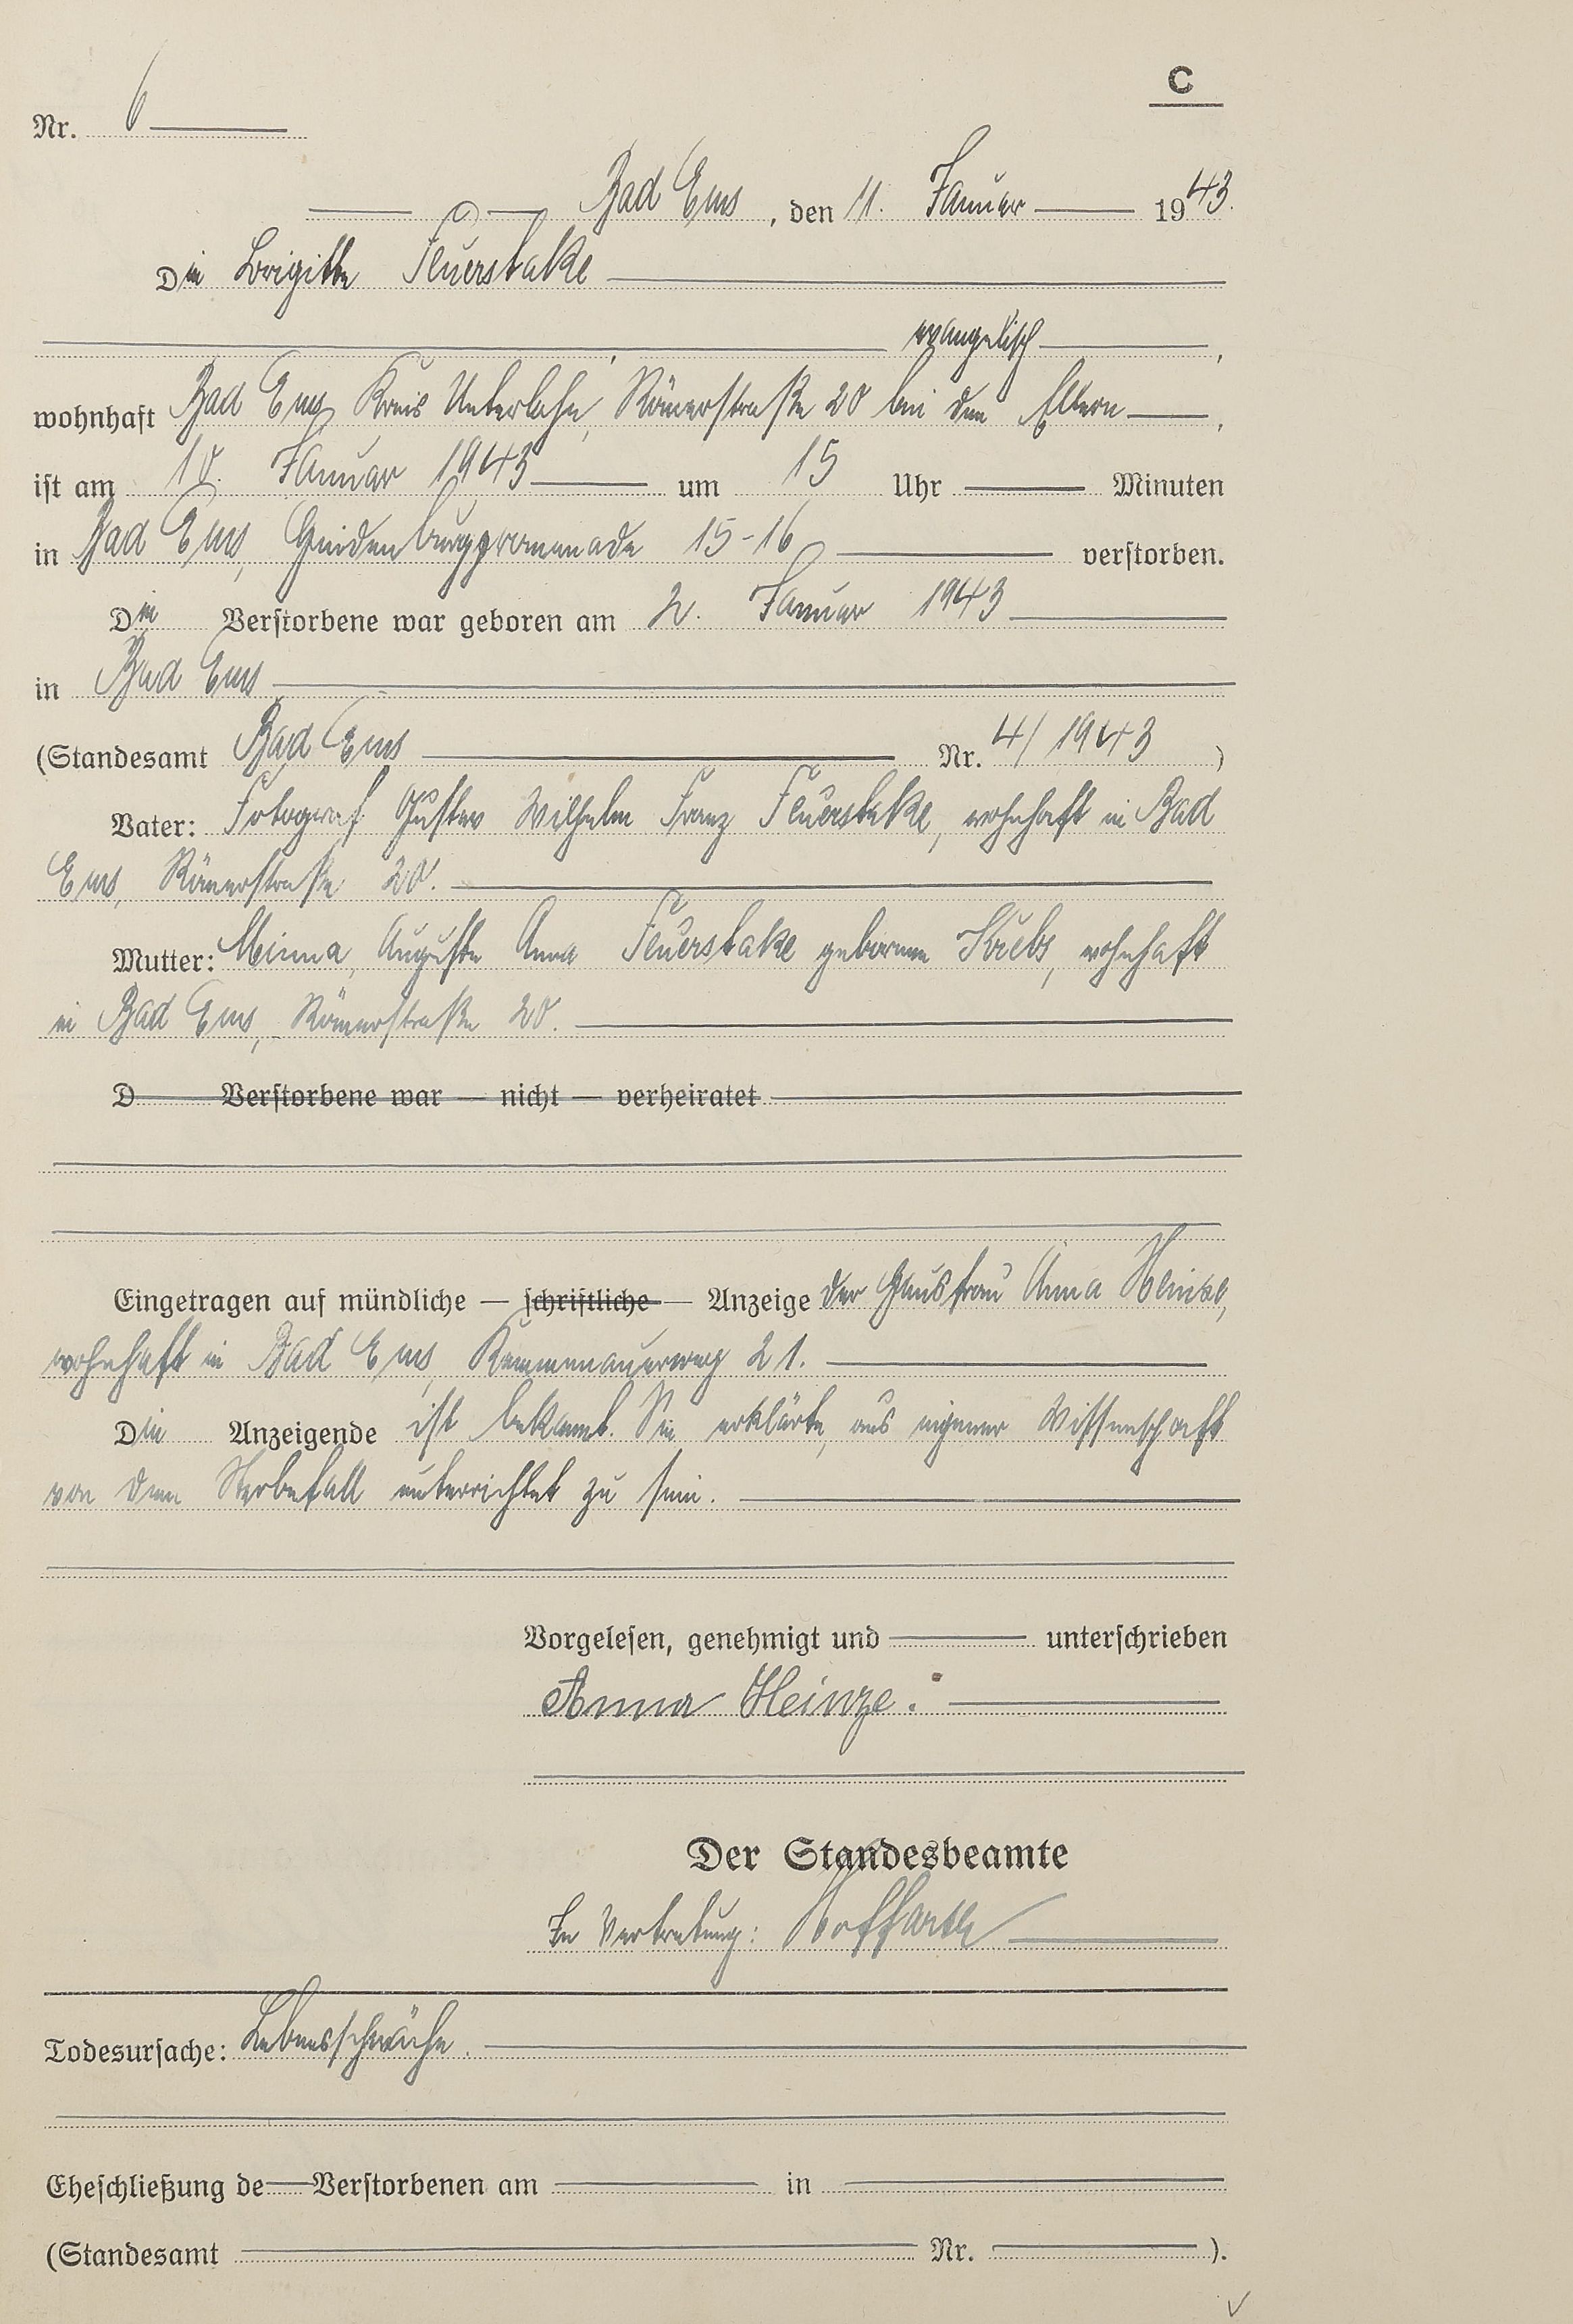 C
Nr. 6
Bad Ems, den 11. Januar 1943.
Die Brigitte Feuerstake
evangelisch,
wohnhaft Bad Ems, Kreis Unterlahn, Römerstraße 20 bei den Eltern,
ist am 10. Januar 1943 um 15 Uhr Minuten
in Bad Ems, 15-16 verstorben.
Die Verstorbene war geboren am 2. Januar 1943
in Bad Ems
(Standesamt Bad Ems Nr. 4/1943)
Vater: Fotograf Gustav Wilhelm Franz Feuerstake, wohnhaft in Bad
Ems, Römerstraße 20.
Mutter: Minna, Auguste Anna Feuerstake geborene Krebs, wohnhaft
in Bad Ems, Römerstraße 20.
D Verstorbene war — nicht — verheiratet
Eingetragen auf mündliche — schriftliche — Anzeige der Hausfrau Anna Heinze,
wohnhaft in Bad Ems, Kemmenauerweg 21.
Die Anzeigende ist bekannt. Sie erklärte, aus eigener Wissenschaft
von dem Sterbefall unterrichtet zu sein.
Vorgelesen, genehmigt und unterschrieben
Anna Heinze.
Der Standesbeamte
In Vertretung:
Todesursache: Lebensschwäche.
Eheschließung de Verstorbenen am in
(Standesamt Nr. ).